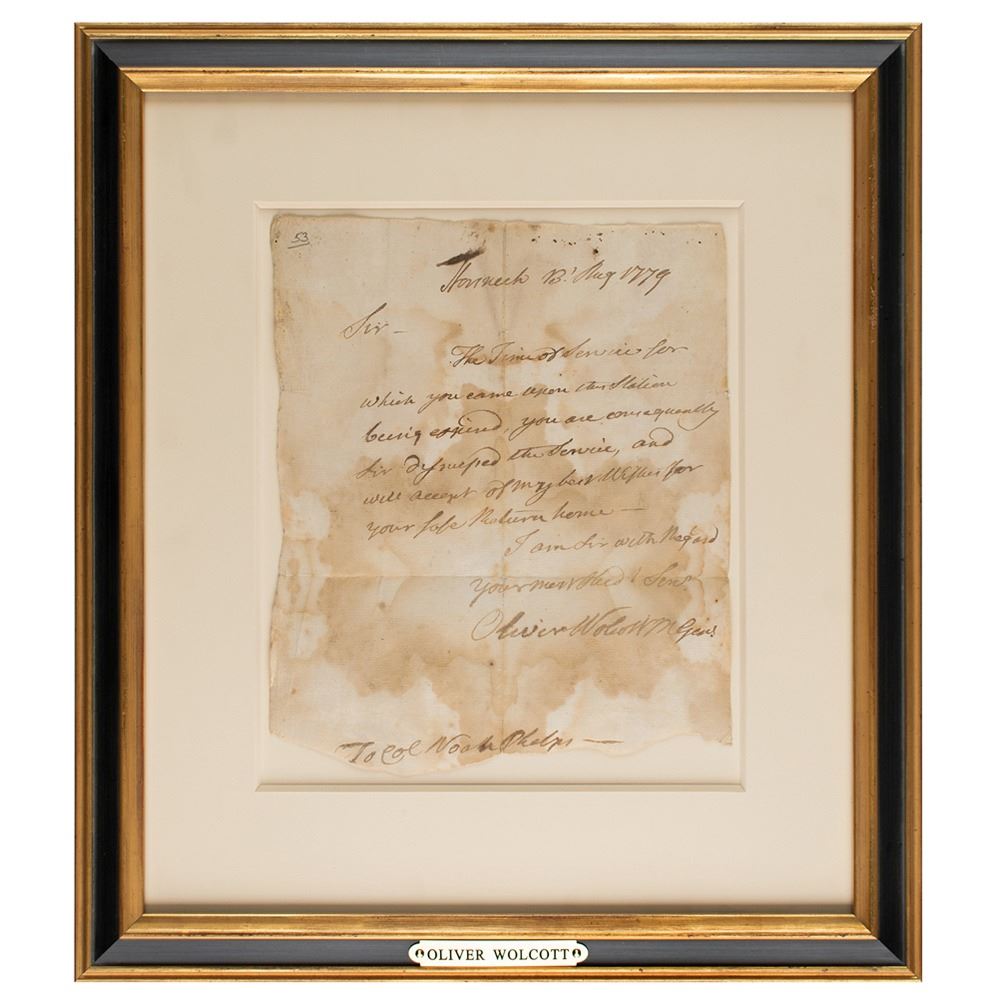 53
Horsneck 13t Aug 1779
Sir —
The Time of Service for
which you came upon this Station
being expired, you are consequently
Sir dismissed the Service, and
will accept of my best Wishes for
your safe Return home —
I am Sir with Regard
your most Hbl Servt
Oliver Wolcott M Genl
To Col Noah Phelps —
OLIVER WOLCOTT